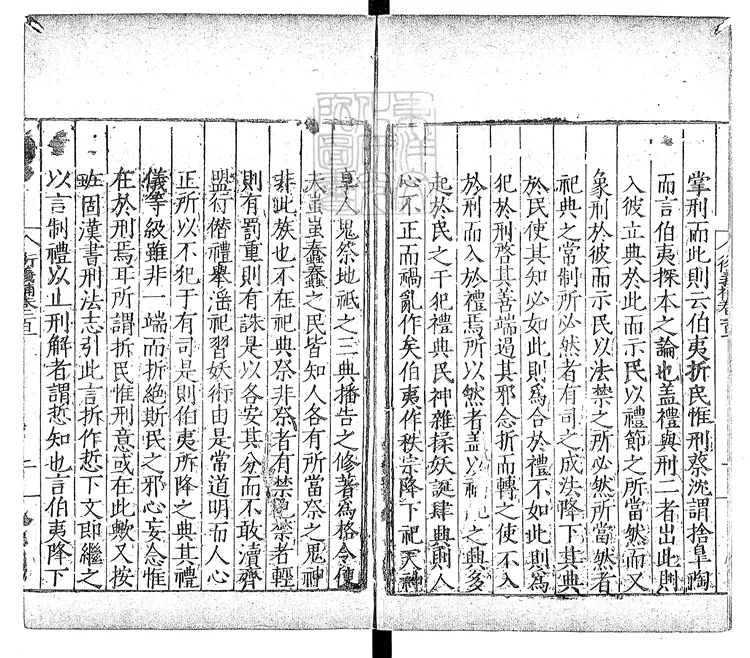 掌刑而此則云伯夷折民惟刑蔡沈謂捨皐陶
而言伯夷探本之論也蓋禮與刑二者出此則
入彼立典於此而示民以禮節之所當然而又
象刑於彼而示民以法禁之所必然所當然者
祀典之常制所必然者有司之成法降下其典
於民使其知必如此則爲合於禮不如此則爲
犯於刑啓其善端遏其邪念折而轉之使不入
於刑而入於禮焉所以然者蓋以之興多
起於民之干犯禮典民神雜揉妖誕肆興則人
心不正而禍亂作矣伯夷作秩宗降下祀天神
人鬼祭地祇之三典播告之修著爲格令使
夫蚩蚩蠢蠢之民皆知人各有所當祭之鬼神
非此族也不在祀典祭非祭者有禁犯禁者輕
則有罰重則有誅是以各安其分而不敢瀆齊
盟行僣禮舉滛祀習妖術由是常道明而人心
正所以不犯于有司是則伯夷所降之典其禮
儀等級雖非一端而折絕斯民之邪心妄念惟
在於刑焉耳所謂折民惟刑意或在此歟又按
班固漢書刑法志引此言折作悊下文即繼之
以言制禮以止刑解者謂悊知也言伯夷降下